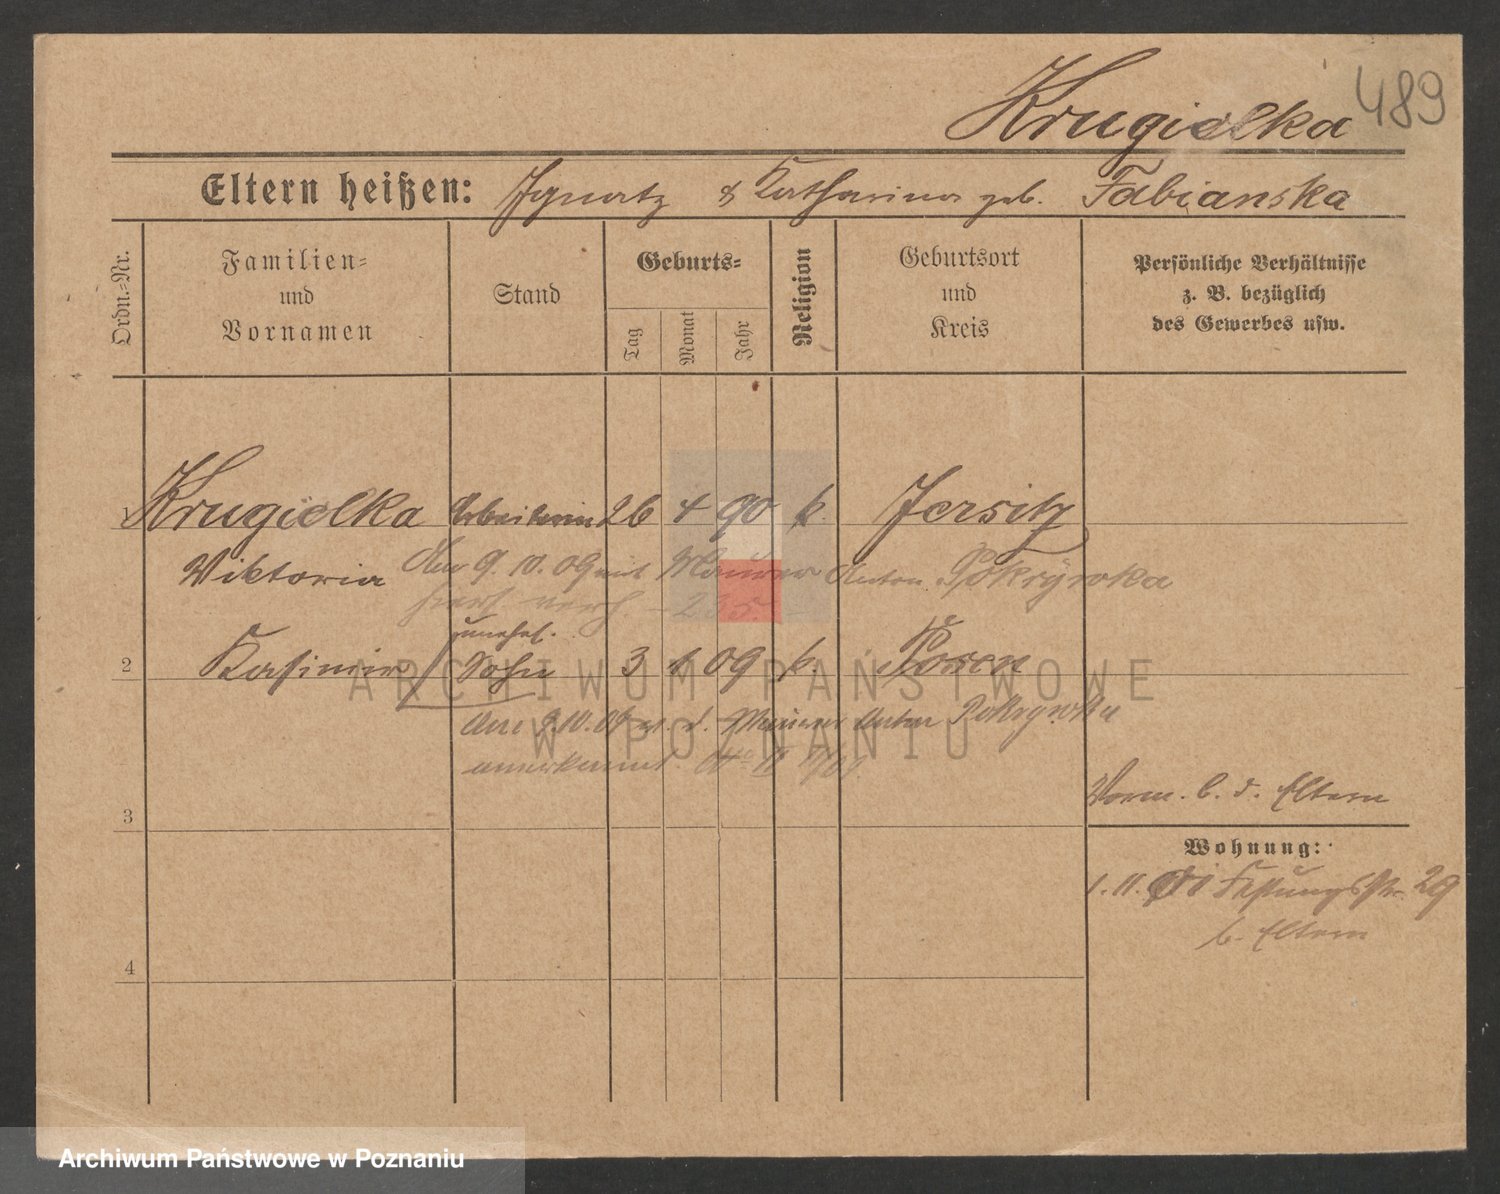 Krugielka 489
Eltern heißen: Ignatz & Katharina geb. Fabianska
Ordn.-Nr.
Familien-
und
Vornamen
Stand
Geburts-
Tag
Monat
Jahr
Religion
Geburtsort
und
Kreis
Persönliche Verhältnisse
z. B. bezüglich
des Gewerbes usw.
1 Krugielka Arbeiterin 26 4 90 k. Jersitz
Viktoria Am 9. 10. 09 mit Maurer Anton Pokrywka
hier verh.
unehel.
2 Kasimir Sohn 3 1 09 k. Posen
Am 9.10.09 v. d. Maurer Anton Pokrywka
anerkannt.
3
Vorm. b. d. Eltern
Wohnung:
1. 11. Festungsstr. 29
b. Eltern
4
ARCHIWUM PAŃSTWOWE
W POZNANIU
Archiwum Państwowe w Poznaniu